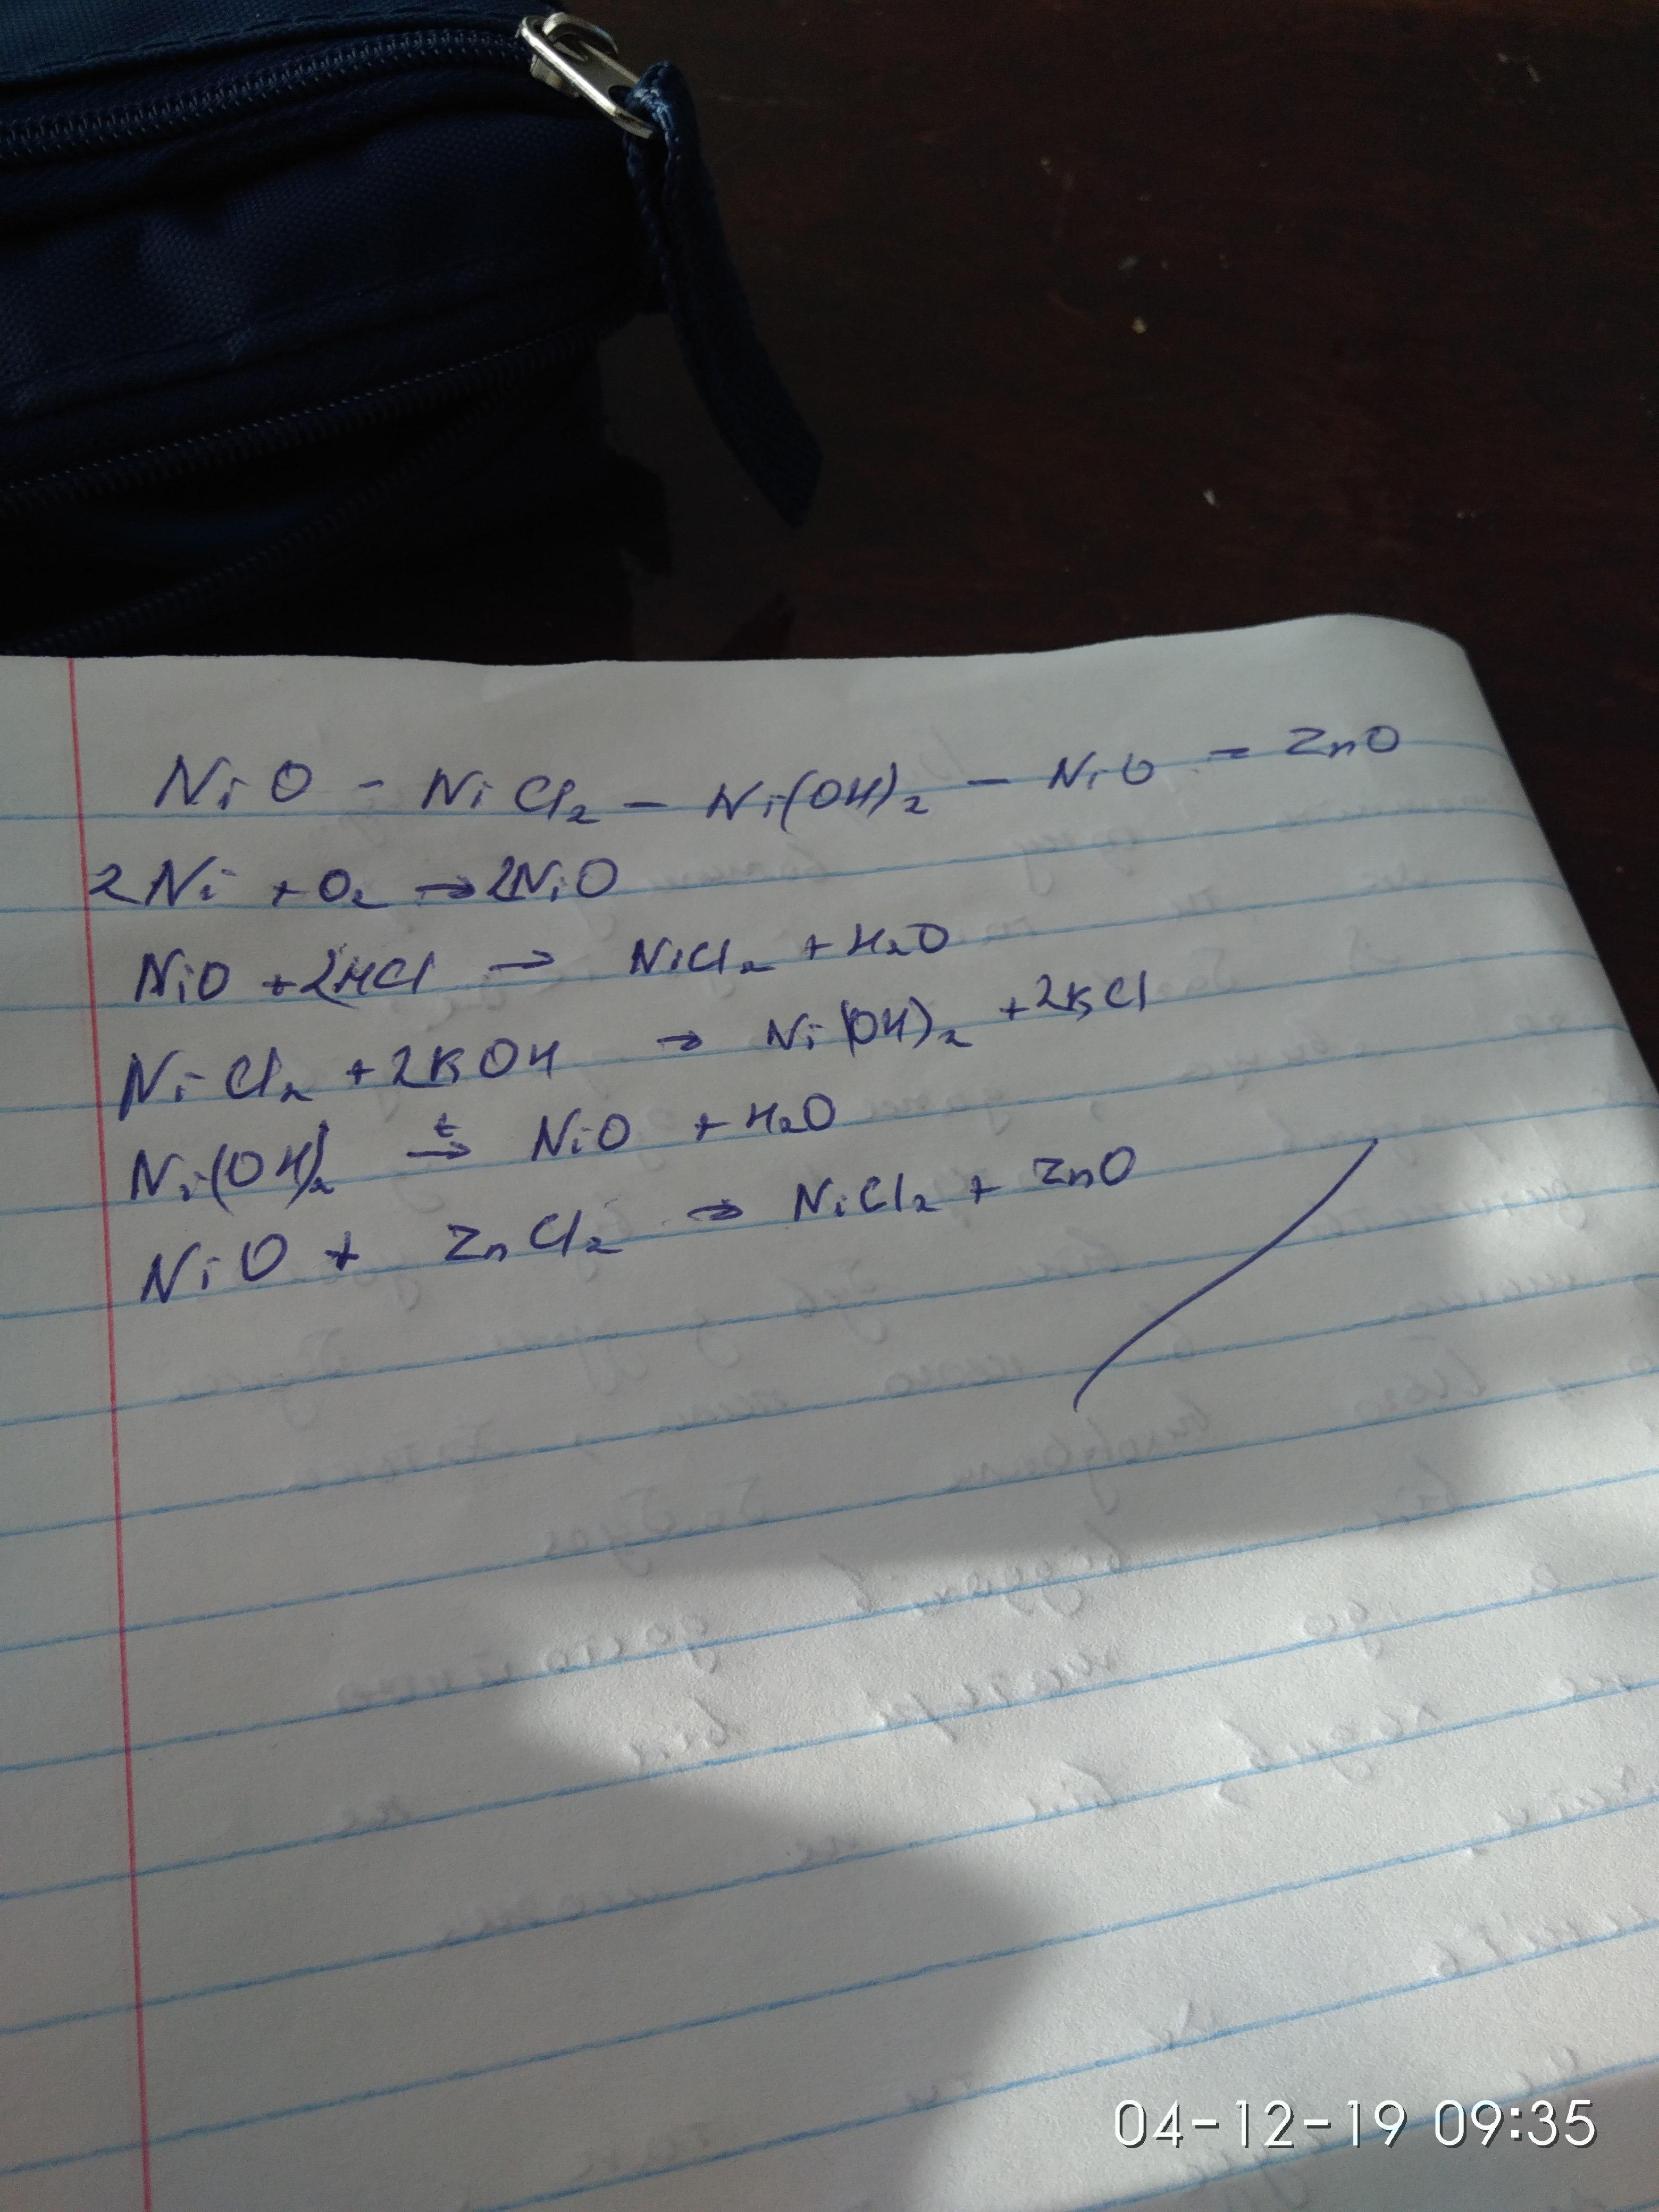 NiO - NiCl₂ - Ni(OH)₂ - NiO = ZnO
2Ni + O₂ → 2NiO
NiO + 2HCl → NiCl₂ + H₂O
NiCl₂ + 2KOH → Ni(OH)₂ + 2KCl
Ni(OH)₂ t→ NiO + H₂O
NiO + ZnCl₂ → NiCl₂ + ZnO
04-12-19 09:35